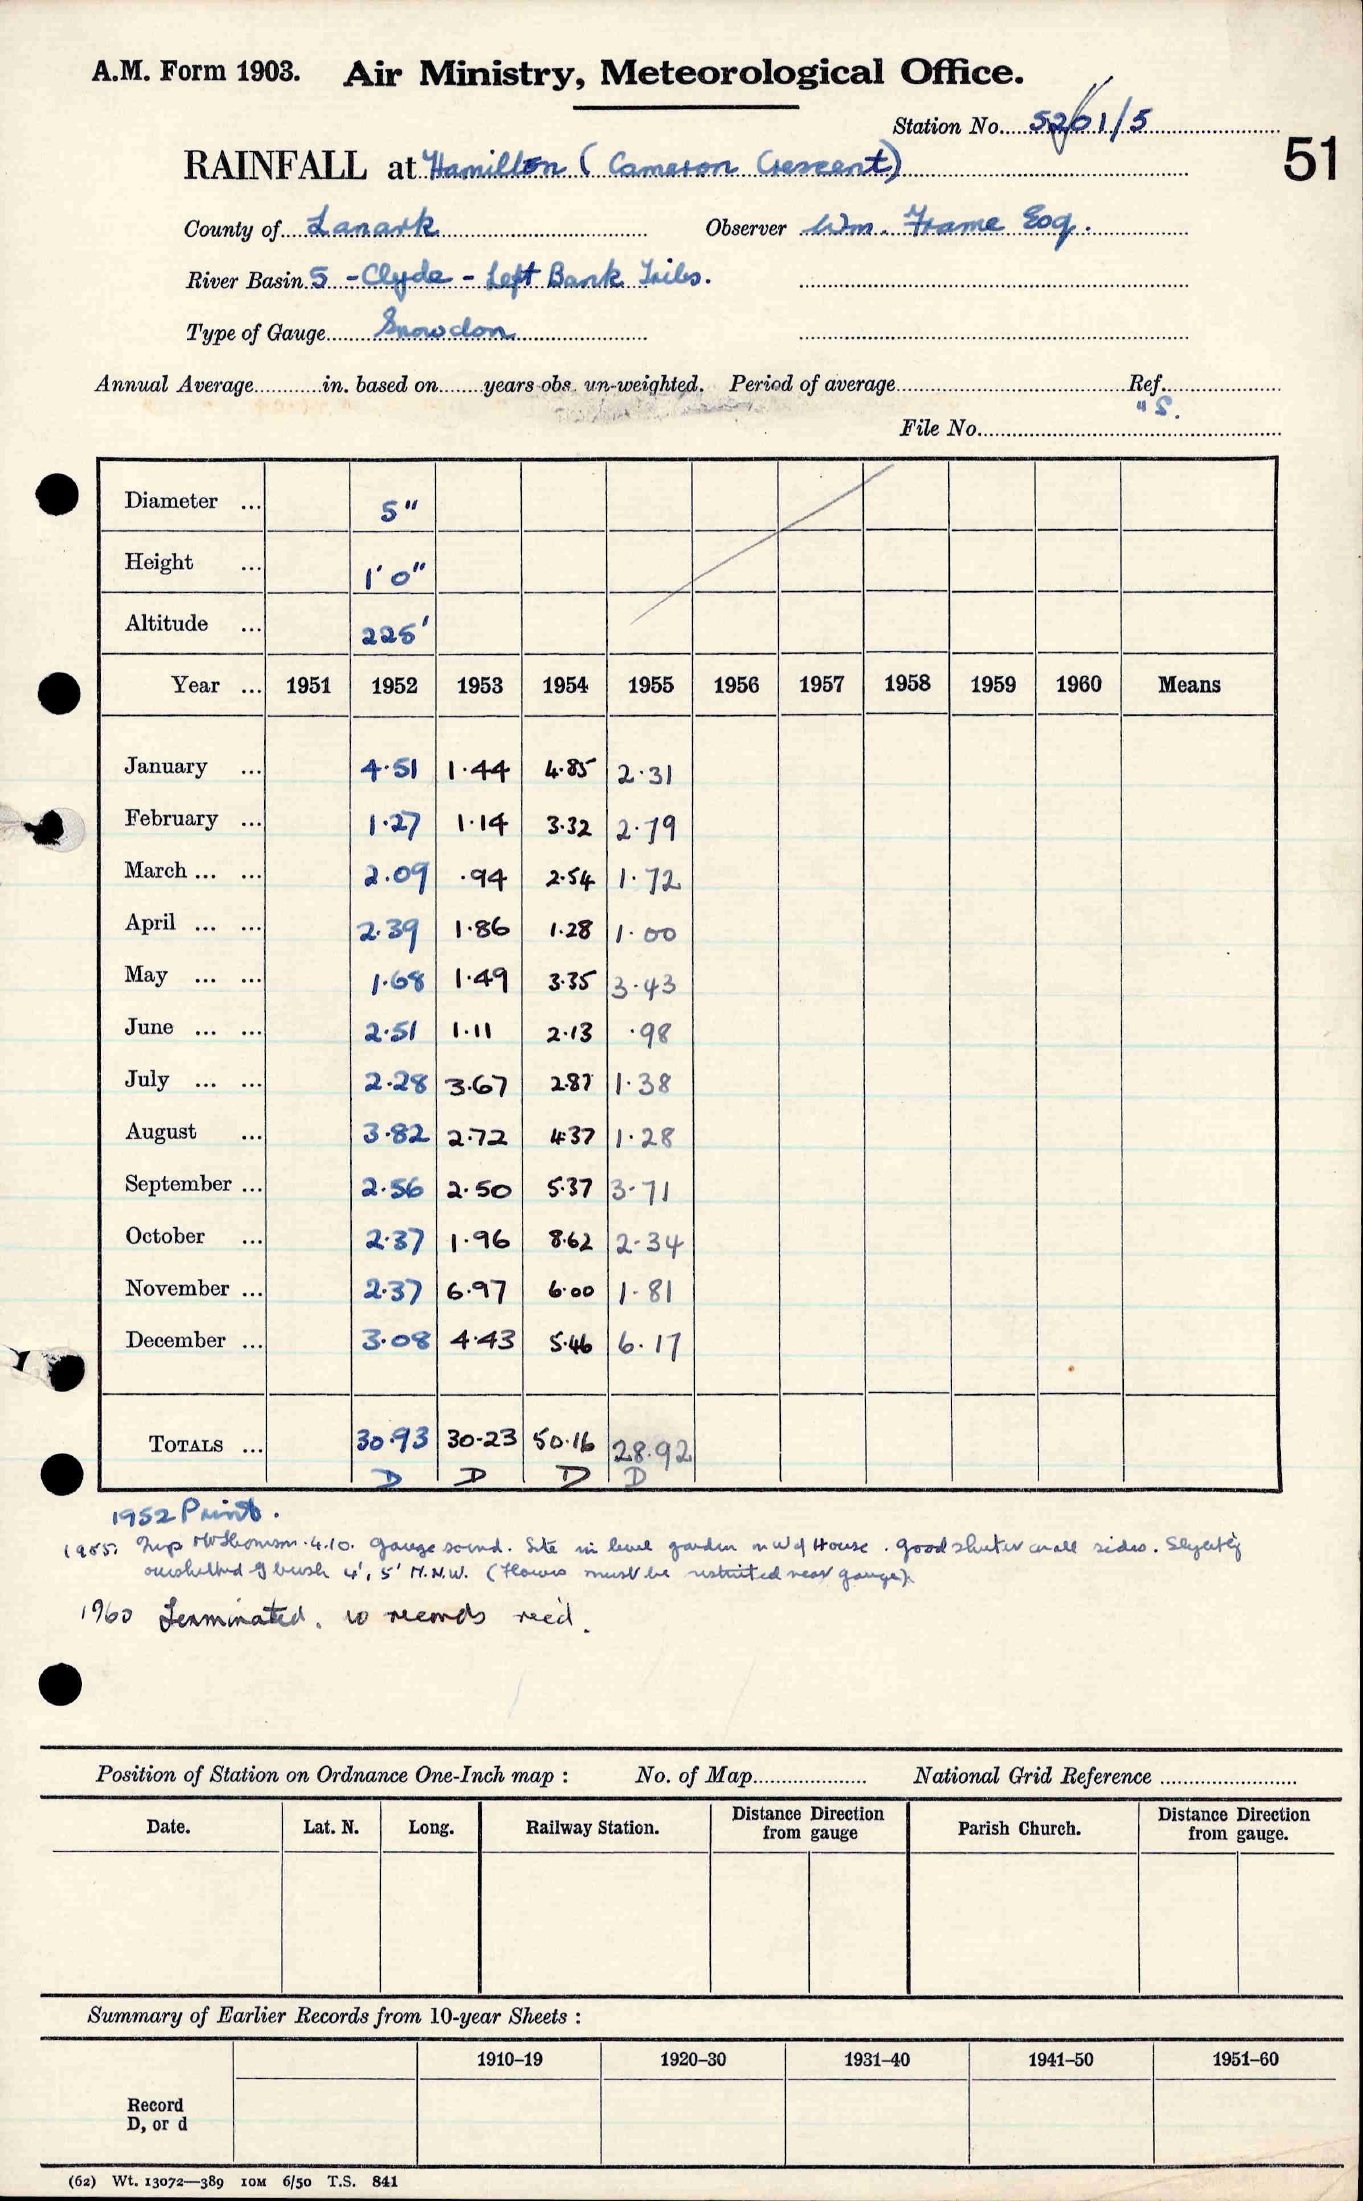 A.M. Form 1903. Air Ministry, Meteorological Office.
Station No. 5201/5
51
RAINFALL at Hamilton (Cameron Crescent)
County of Lanark Observer Wm. Frame Esq.
River Basin 5 - Clyde - Left Bank Tribs.
Type of Gauge Snowdon
Annual Average in. based on years obs. un-weighted. Period of average Ref.
" S.
File No.
Diameter ... 5"
Height ... 1' 0"
Altitude ... 225'
Year ... 1951 1952 1953 1954 1955 1956 1957 1958 1959 1960 Means
January ... 4.51 1.44 4.85 2.31
February ... 1.27 1.14 3.32 2.79
March ... ... 2.09 .94 2.54 1.72
April ... ... 2.39 1.86 1.28 1.00
May ... ... 1.68 1.49 3.35 3.43
June ... ... 2.51 1.11 2.13 .98
July ... ... 2.28 3.67 2.87 1.38
August ... 3.82 2.72 4.37 1.28
September ... 2.56 2.50 5.37 3.71
October ... 2.37 1.96 8.62 2.34
November ... 2.37 6.97 6.00 1.81
December ... 3.08 4.43 5.46 6.17
TOTALS ... 30.93 30.23 50.16 28.92
D D D D
1952 Print.
1955. Insp 4.10. Gauge sound. Site in level garden on W of House. Good shelter on all sides. Slightly
bush 4', 5' N.N.W. (Flowers must be restricted near gauge).
1960 Terminated. no records rec'd.
Position of Station on Ordnance One-Inch map : No. of Map National Grid Reference
Date. Lat. N. Long. Railway Station. Distance Direction from gauge Parish Church. Distance Direction from gauge.
Summary of Earlier Records from 10-year Sheets :
1910–19 1920–30 1931–40 1941–50 1951–60
Record
D, or d
(62) Wt. 13072—389 10M 6/50 T.S. 841